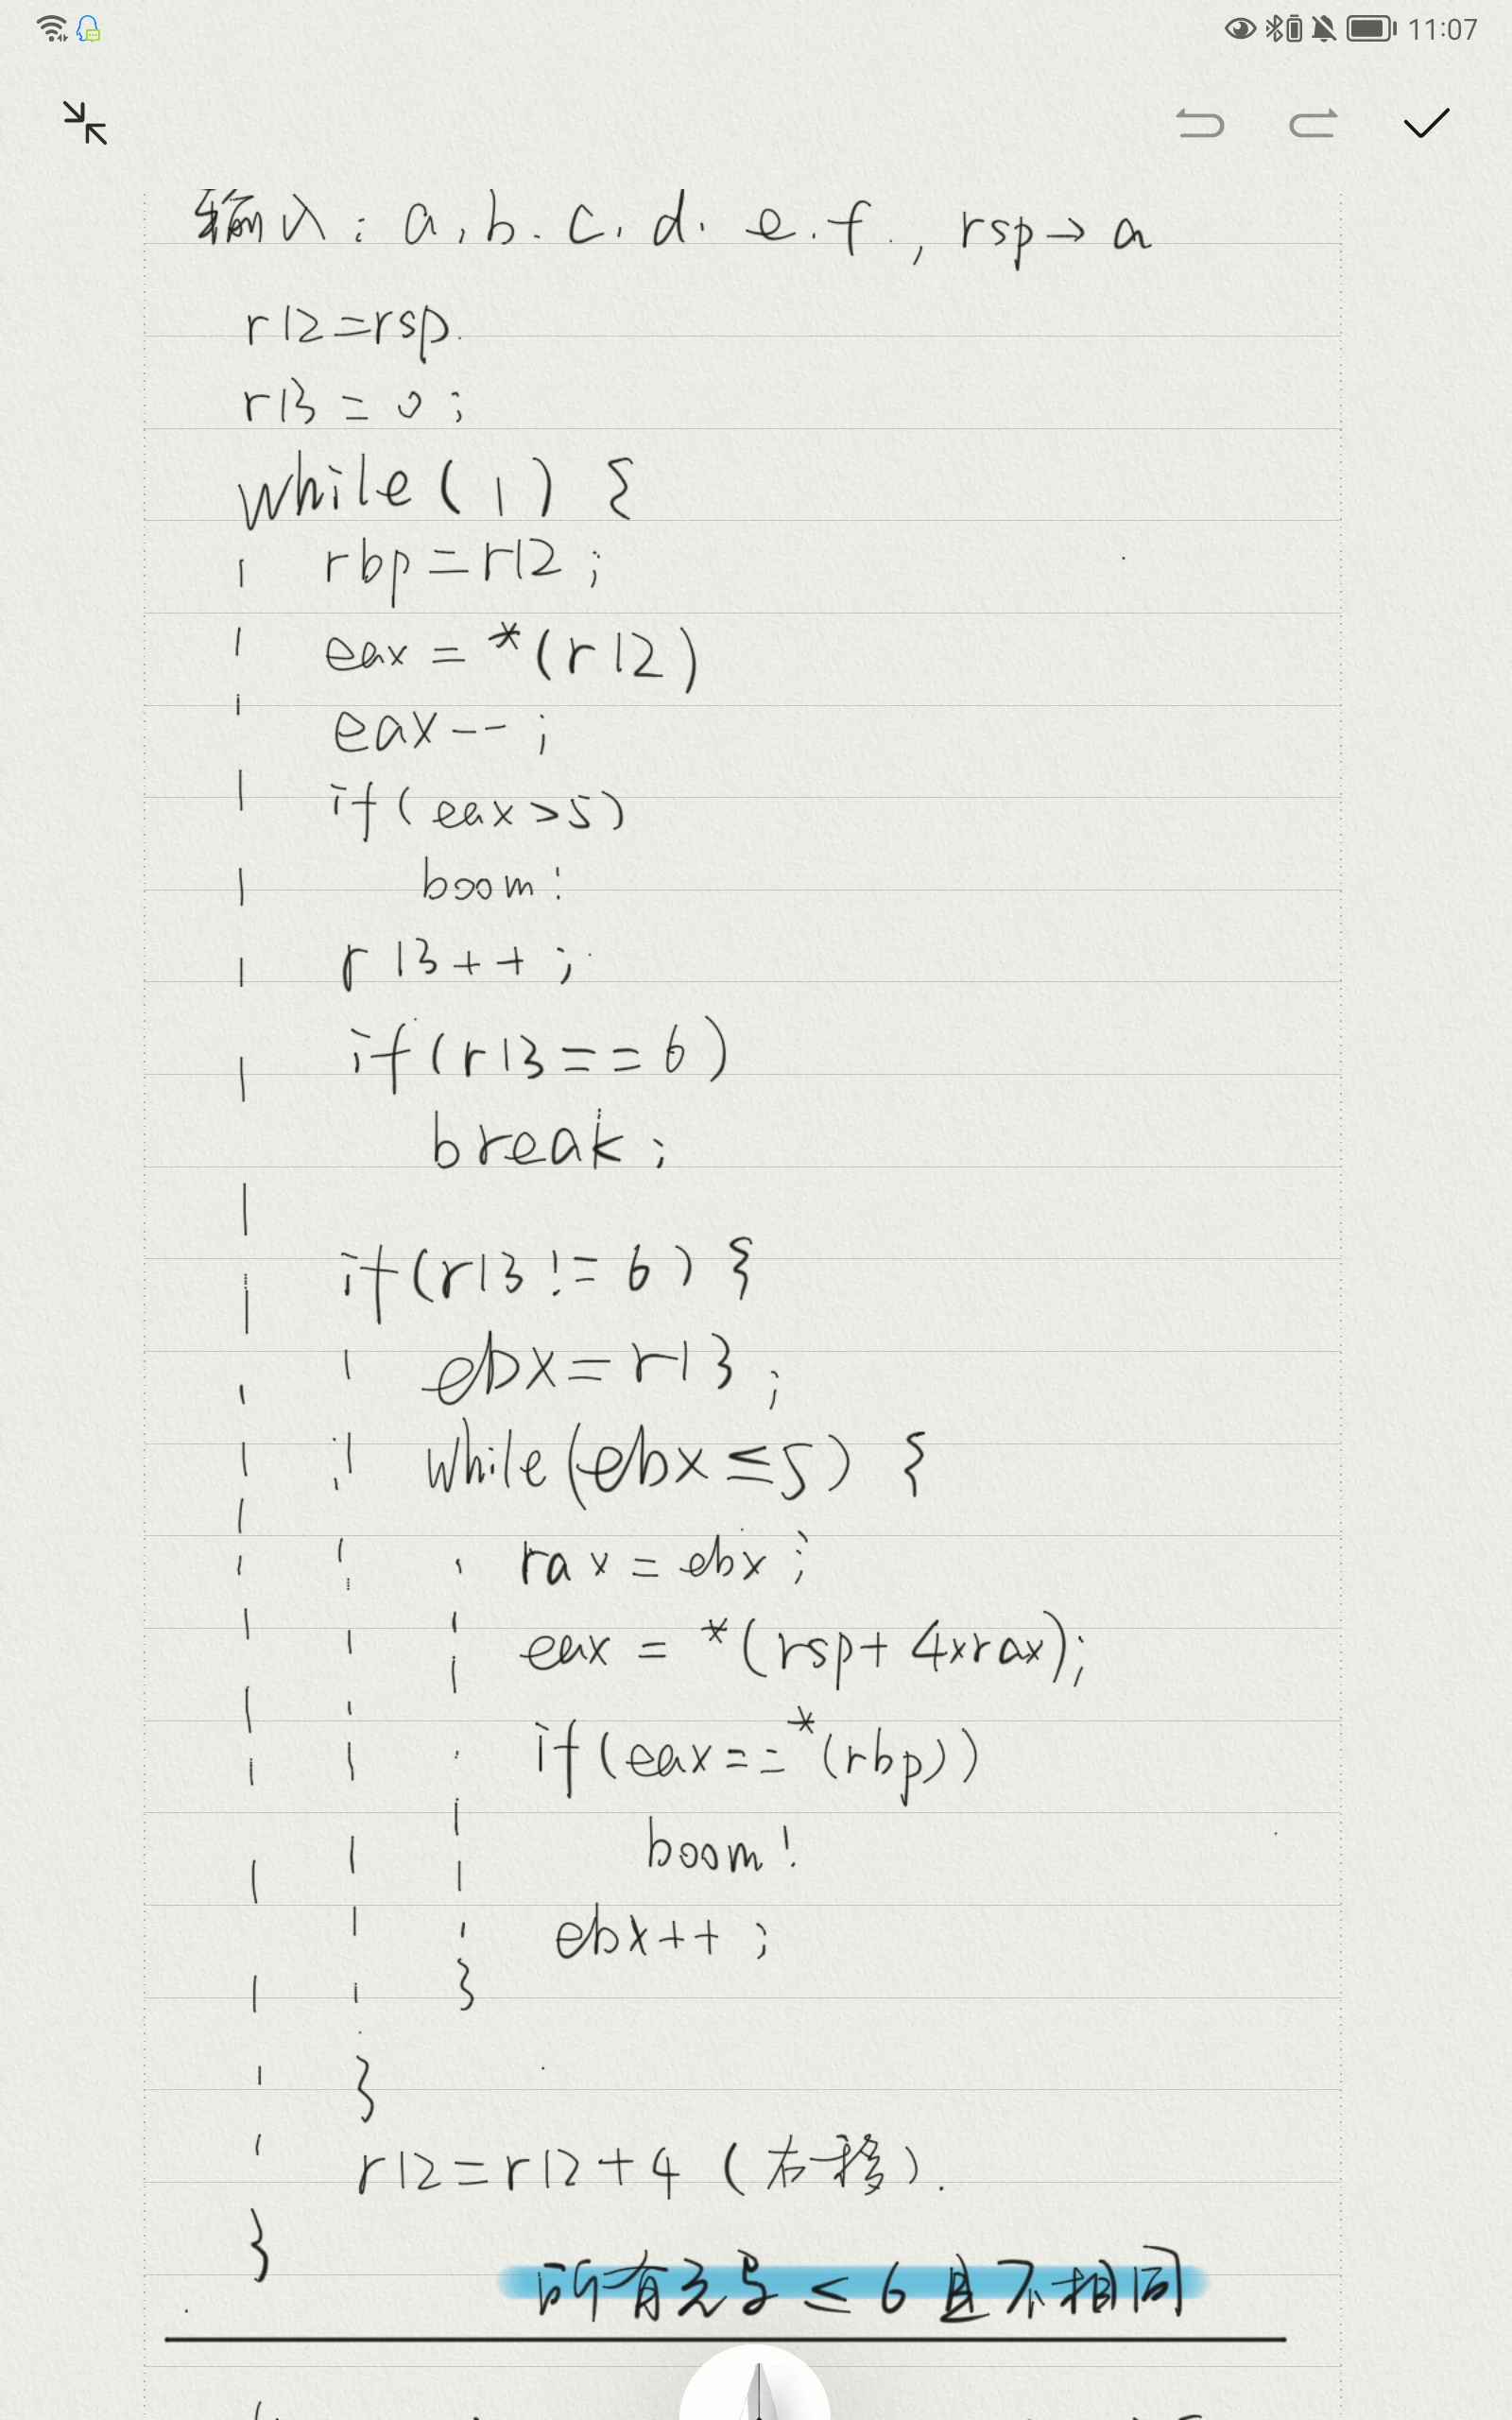 11:07
输入: a, b. c. d. e. f., rsp→ a
r12=rsp.
r13 = 0 ;
while ( 1 ) {
rbp = r12 ;
eax = *(r12)
eax-- ;
if ( eax > 5 )
boom!
r13++ ;
if ( r13 == 6 )
break ;
if ( r13 != 6 ) {
ebx = r13 ;
while ( ebx ≤ 5 ) {
rax = ebx ;
eax = *(rsp+ 4xrax);
if ( eax == *(rbp))
boom!
ebx++ ;
}
}
r12 = r12 + 4 ( 右移 ).
}
所有元素 ≤ 6 且不相同